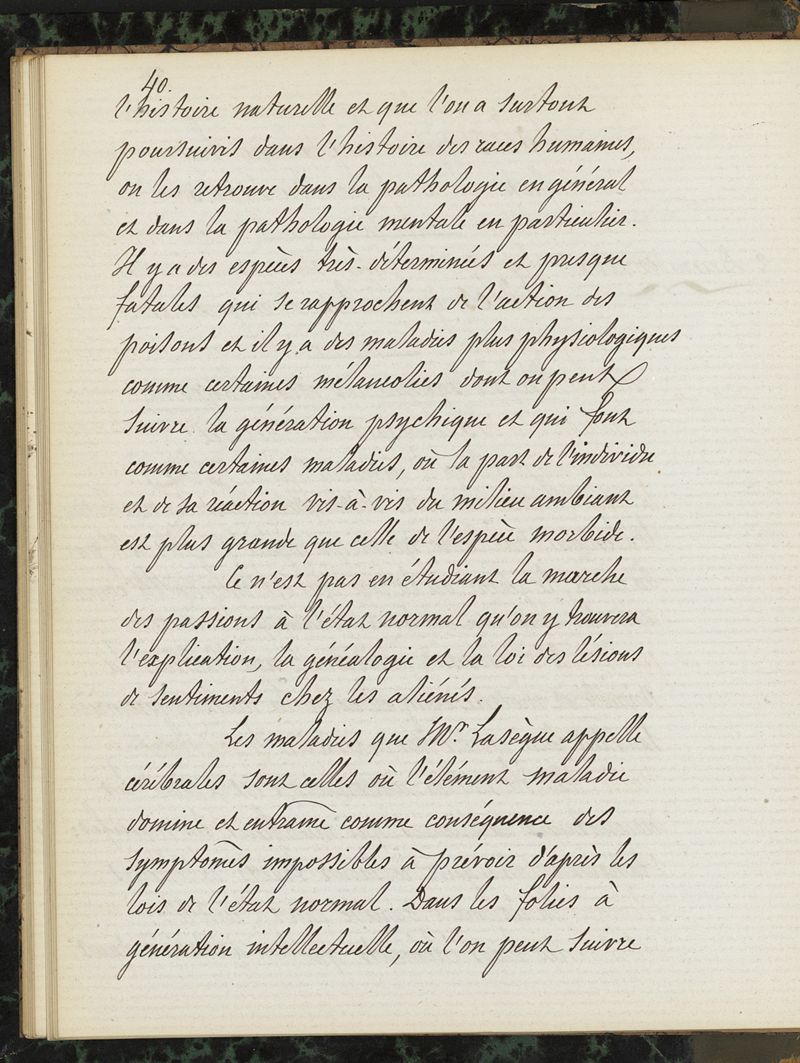 40.
l'histoire naturelle et que l'on a surtout
poursuivis dans l'histoire des races humaines,
on les retrouve dans la pathologie en général
et dans la pathologie mentale en particulier.
Il y a des espèces très-déterminées et presque
fatales qui se rapprochent de l'action des
poisons et il y a des maladies plus physiologiques
comme certaines mélancolies dont on peut
suivre la génération psychique et qui sont
comme certaines maladies, où la part de l'individu
et de sa réaction vis-à-vis du milieu ambiant
est plus grande que celle de l'espèce morbide.
Ce n'est pas en étudiant la marche
des passions à l'état normal qu'on y trouvera
l'explication, la généalogie et la loi des lésions
de sentiments chez les aliénés.
Les maladies que Mr. Lasègue appelle
cérébrales sont celles où l'élément maladie
domine et entraîne comme conséquence des
symptômes impossibles à prévoir d'après les
lois de l'état normal. Dans les folies à
génération intellectuelle, où l'on peut suivre